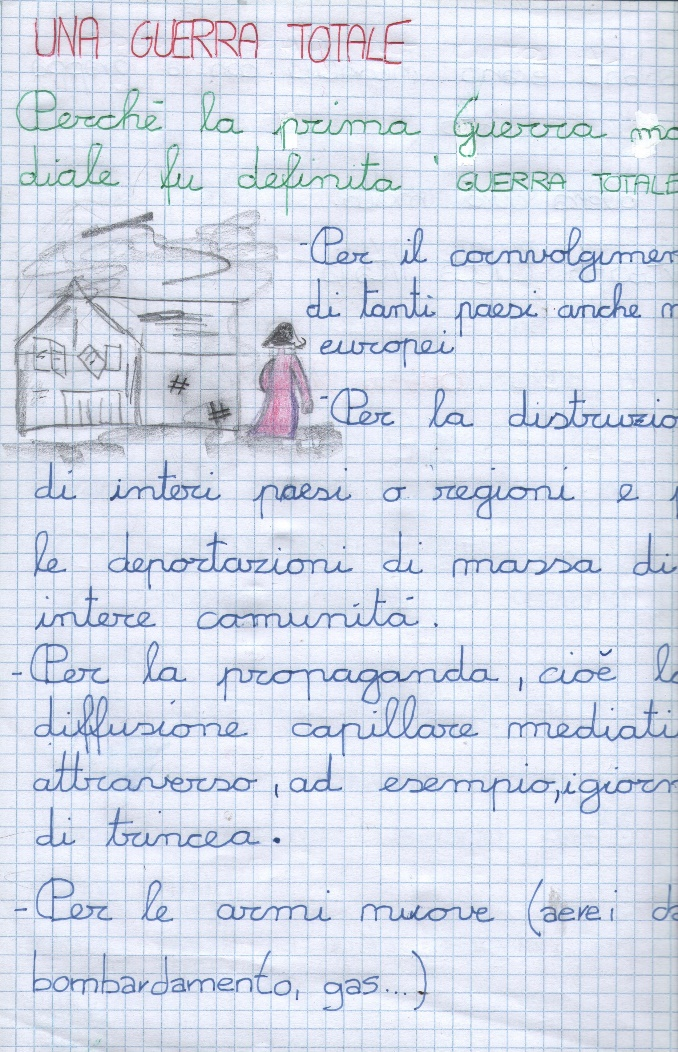 UNA GUERRA TOTALE
Perchè la prima Guerra mo
diale fu definita ' GUERRA TOTALE
-Per il coinvolgimen
di tanti paesi anche n
europei
-Per la distruzio
di interi paesi o regioni e p
le deportazioni di massa di
intere comunità.
-Per la propaganda, cioè la
diffusione capillare mediati
attraverso, ad esempio, i giorn
di trincea.
-Per le armi nuove (aerei da
bombardamento, gas...)